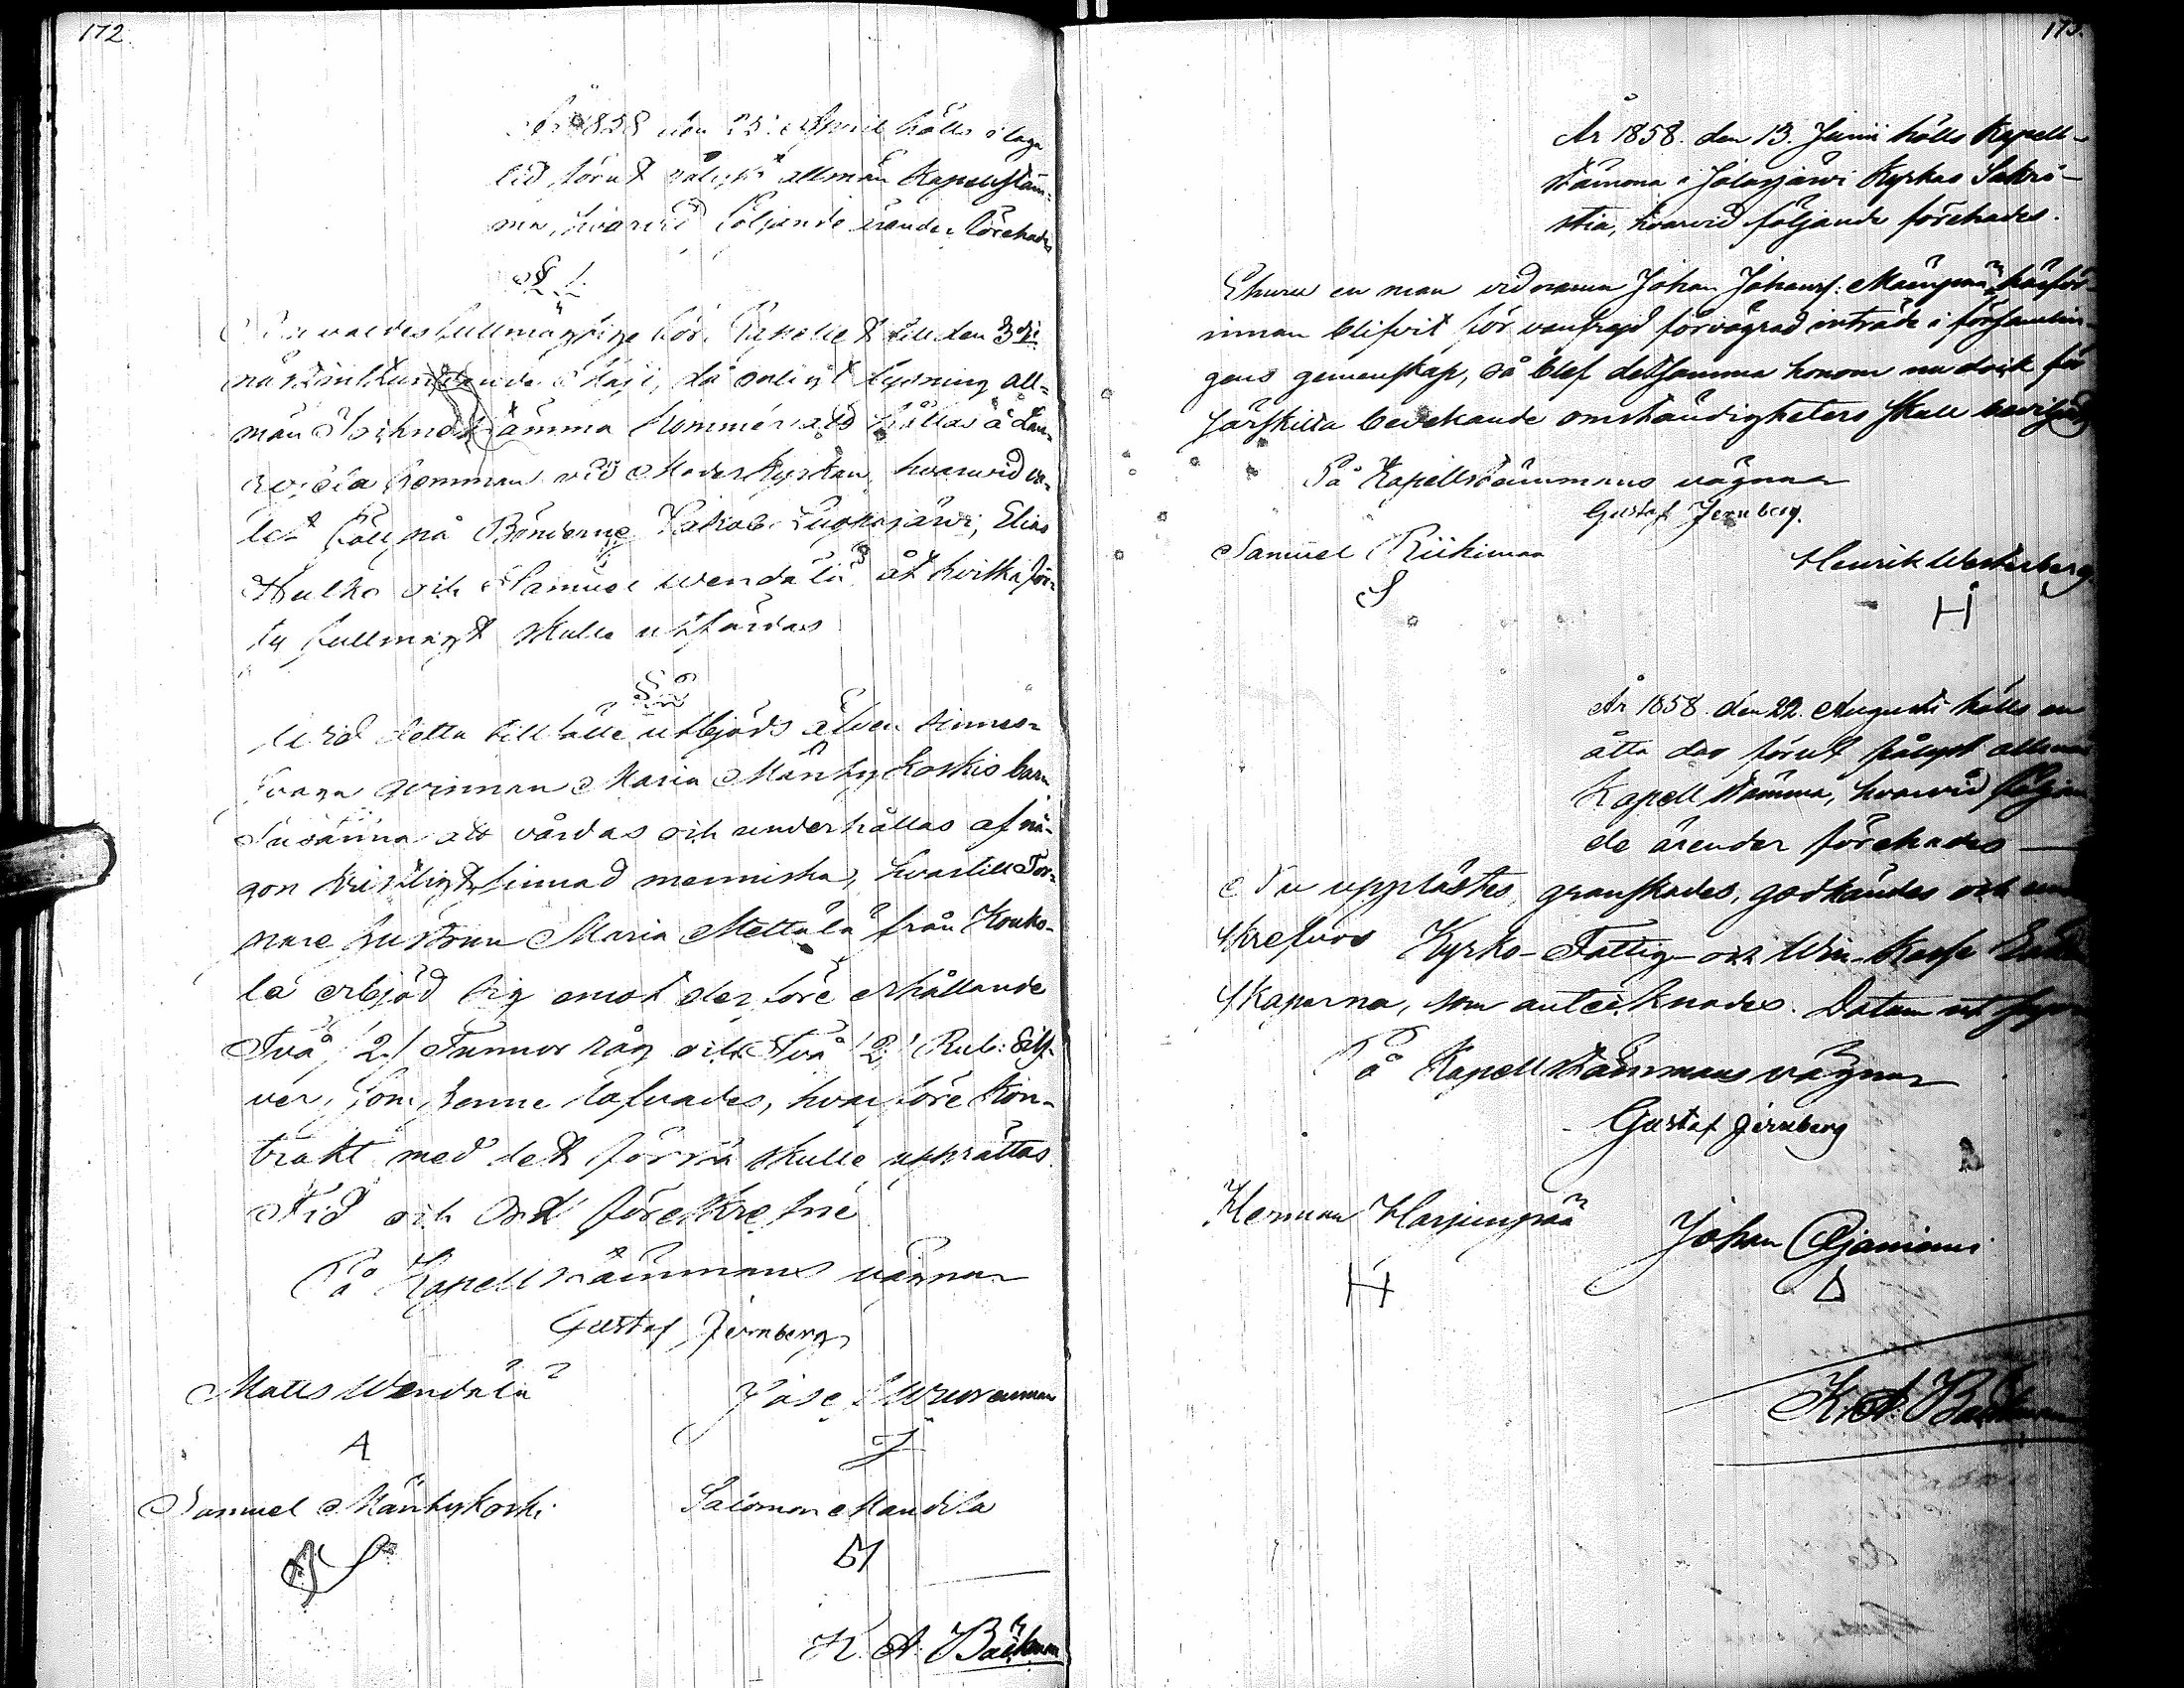 172.
År 1858 den 25. April hölls i laga
tid förut pålyst allmän Kapellstäm-
ma, hvarvid följande ärender förehades
§ 1.
valdes fullmägtige för Kapellet till den 3die
nästinstundande Maji, då enligt lysning all-
män Socknestämma kommer att hållas å
vid Moderkyrkan, hvarvid va-
let föll på Bönderne Jakob Luopajärvi, Elias
Hulko och Samuel Wendälä åt hvilka för-
ty fullmagt skulle utfärdas
§ 2
Wid detta tillfälle utbjöds äfven sinnes-
svaga qvinnan Maria Mäntykoskis barn
Susanna att vårdas och underhållas af nå-
gon kristligt sinnad menniska, hvartill Tor-
pare hustrun Maria Mettälä från Kouko-
la erbjöd sig emot der före erhållande
Två /2/ Tunnor råg och Två /2/ Rub: Silf-
ver, som henne lofvades, hvarföre Kon-
trakt med det förra skulle upprättas.
Tid och Ort föreskrefne
På Kapellstämmans vägnar
Gustaf Jernberg
Matts Wendälä
Josef
A
J
Samuel Mäntykoski
Salomon Mandila
SM
K. A. Bäckman
173.
År 1858. den 13. Junii hölls Kapell-
stämma i Jalasjärvi Kyrkas Sakri-
stia, hvarvid följande förehades.
Ehuru en man vid namn Johan Johansf: Mäenpää härför-
innan blifvit för vanfrejd förvägrad inträde i församlin-
gens gemenskap, så blef detsamma honom nu dock för
särskilda bevekande omständigheters skull
På Kapellstämmans vägnar
Gustaf Jernberg.
Samuel Riihimaa
Henrik Westerberg
S
H
År 1858. den 22. Augusti hölls en
åtta dar förut pålyst allmän
Kapell stämma, hvarvid följan
de ärender förehades
Nu upplästes, granskades, godkändes och un
skrefvos Kyrko- Fattig- och Win-Kasse
skaperna, som antecknades. Datum ut supra
På Kapellstämmans vägnar
Gustaf Jernberg
Herman Harjunpää
Johan Ojaniemi
H
K. A. Bäckman